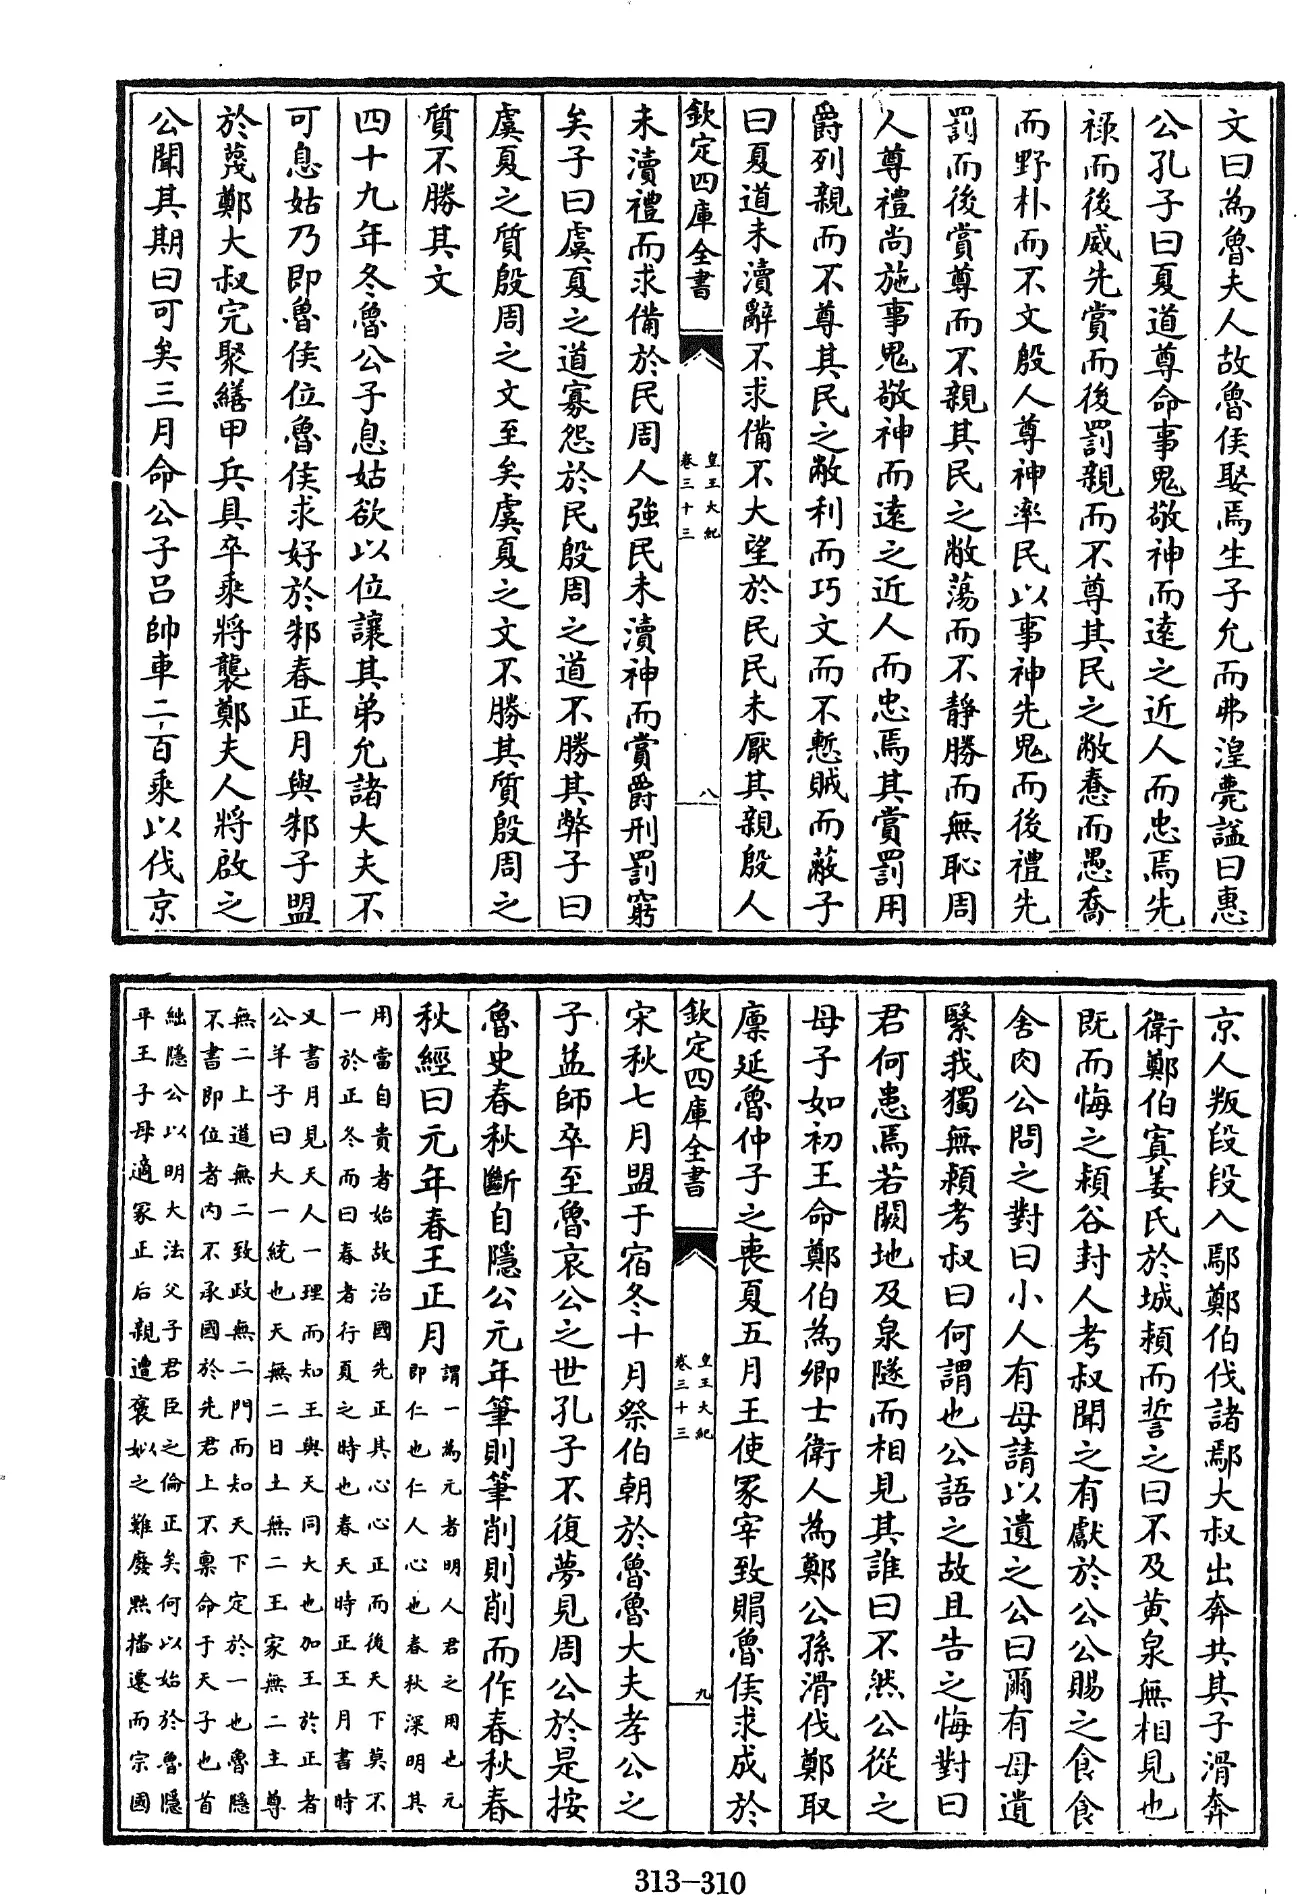 文曰為魯夫人故魯侯娶焉生子允而弗湟薨諡曰惠
公孔子曰夏道尊命事鬼敬神而逺之近人而忠焉先
祿而後威先賞而後罰親而不尊其民之敝惷而愚喬
而野朴而不文殷人尊神率民以事神先鬼而後禮先
罰而後賞尊而不親其民之敝蕩而不靜勝而無恥周
人尊禮尚施事鬼敬神而逺之近人而忠焉其賞罰用
爵列親而不尊其民之敝利而巧文而不慙賊而蔽子
曰夏道未瀆辭不求備不大望於民民未厭其親殷人
欽定四庫全書
皇王大紀
卷三十三
八
未瀆禮而求備於民周人強民未瀆神而賞爵刑罰窮
矣子曰虞夏之道寡怨於民殷周之道不勝其弊子曰
虞夏之質殷周之文至矣虞夏之文不勝其質殷周之
質不勝其文
四十九年冬魯公子息姑欲以位讓其弟允諸大夫不
可息姑乃即魯侯位魯侯求好於邾春正月與邾子盟
於蔑鄭大叔完聚繕甲兵具卒乘將襲鄭夫人將啟之
公聞其期曰可矣三月命公子呂帥車二百乘以伐京
京人叛段段入鄢鄭伯伐諸鄢大叔出奔共其子滑奔
衛鄭伯寘姜氏於城潁而誓之曰不及黄泉無相見也
既而悔之潁谷封人考叔聞之有獻於公公賜之食食
舍肉公問之對曰小人有母請以遺之公曰爾有母遺
繄我獨無潁考叔曰何謂也公語之故且告之悔對曰
君何患焉若闕地及泉隧而相見其誰曰不然公從之
母子如初王命鄭伯為卿士衛人為鄭公孫滑伐鄭取
廩延魯仲子之喪夏五月王使冢宰致賵魯侯求成於
欽定四庫全書
皇王大紀
卷三十三
九
宋秋七月盟于宿冬十月祭伯朝於魯魯大夫孝公之
子益師卒至魯哀公之世孔子不復夢見周公於是按
魯史春秋斷自隱公元年筆則筆削則削而作春秋春
秋經曰元年春王正月
謂一為元者明人君之用也元
即仁也仁人心也春秋深明其
用當自貴者始故治國先正其心心正而後天下莫不
一於正冬而曰春者行夏之時也春天時正王月書時
又書月見天人一理而知王與天同大也加王於正者
公羊子曰大一統也天無二日土無二王家無二主尊
無二上道無二致政無二門而知天下定於一也魯隱
不書即位者内不承國於先君上不禀命于天子也首
絀隱公以明大法父子君臣之倫正矣何以始於魯隱
平王子母適冢正后親遭褒姒之難廢黜播遷而宗國
313-310